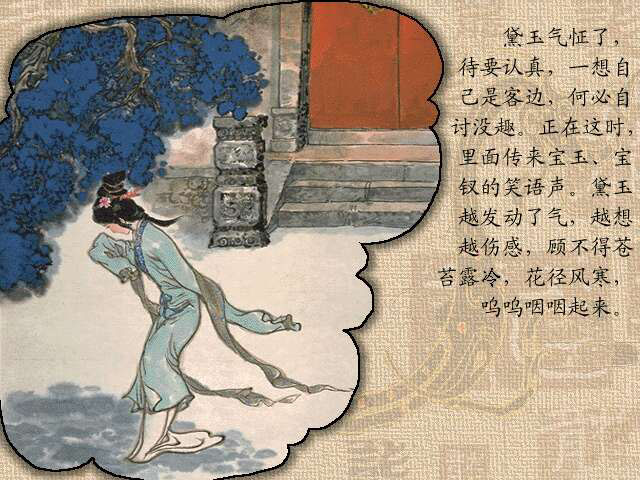 黛玉气怔了，
待要认真，一想自
己是客边，何必自
讨没趣。正在这时，
里面传来宝玉、宝
钗的笑语声。黛玉
越发动了气，越想
越伤感，顾不得苍
苔露冷，花径风寒，
呜呜咽咽起来。